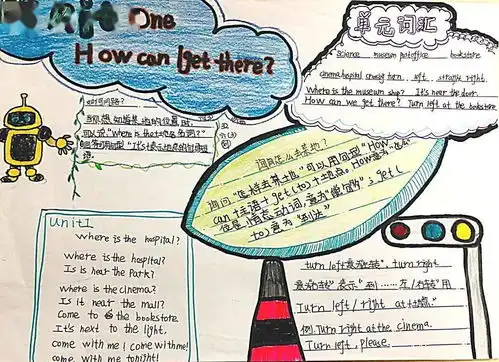 One
How can I get there?
单元词汇
science museum postoffice bookstore
cinema hospital crossing turn left straight right
Where is the museum shop? It's near the door.
How can we get there? Turn left at the bookstore.
如何问路?
当你想知道某地的位置时,
可以说"Where is the+地点名词?"
询问怎么去某地?
询问"怎样去某地"可以用句型"How
can+主语+get(to)+地点。How意为"怎么"
can是情态动词,意为"能够";get(
to)意为"到达"
Unit1
Where is the hospital?
Where is the hospital?
Is is near the Park?
Where is the cinema?
Is it near the mall?
Come to the bookstore
It's next to the light,
come with me! Come with me!
come with me tonight!
"turn left意为左转", turn right
意为右转"表示"到……左/右转"用
Turn left/right at+地点."
例.Turn right at the cinema.
Turn left, please.